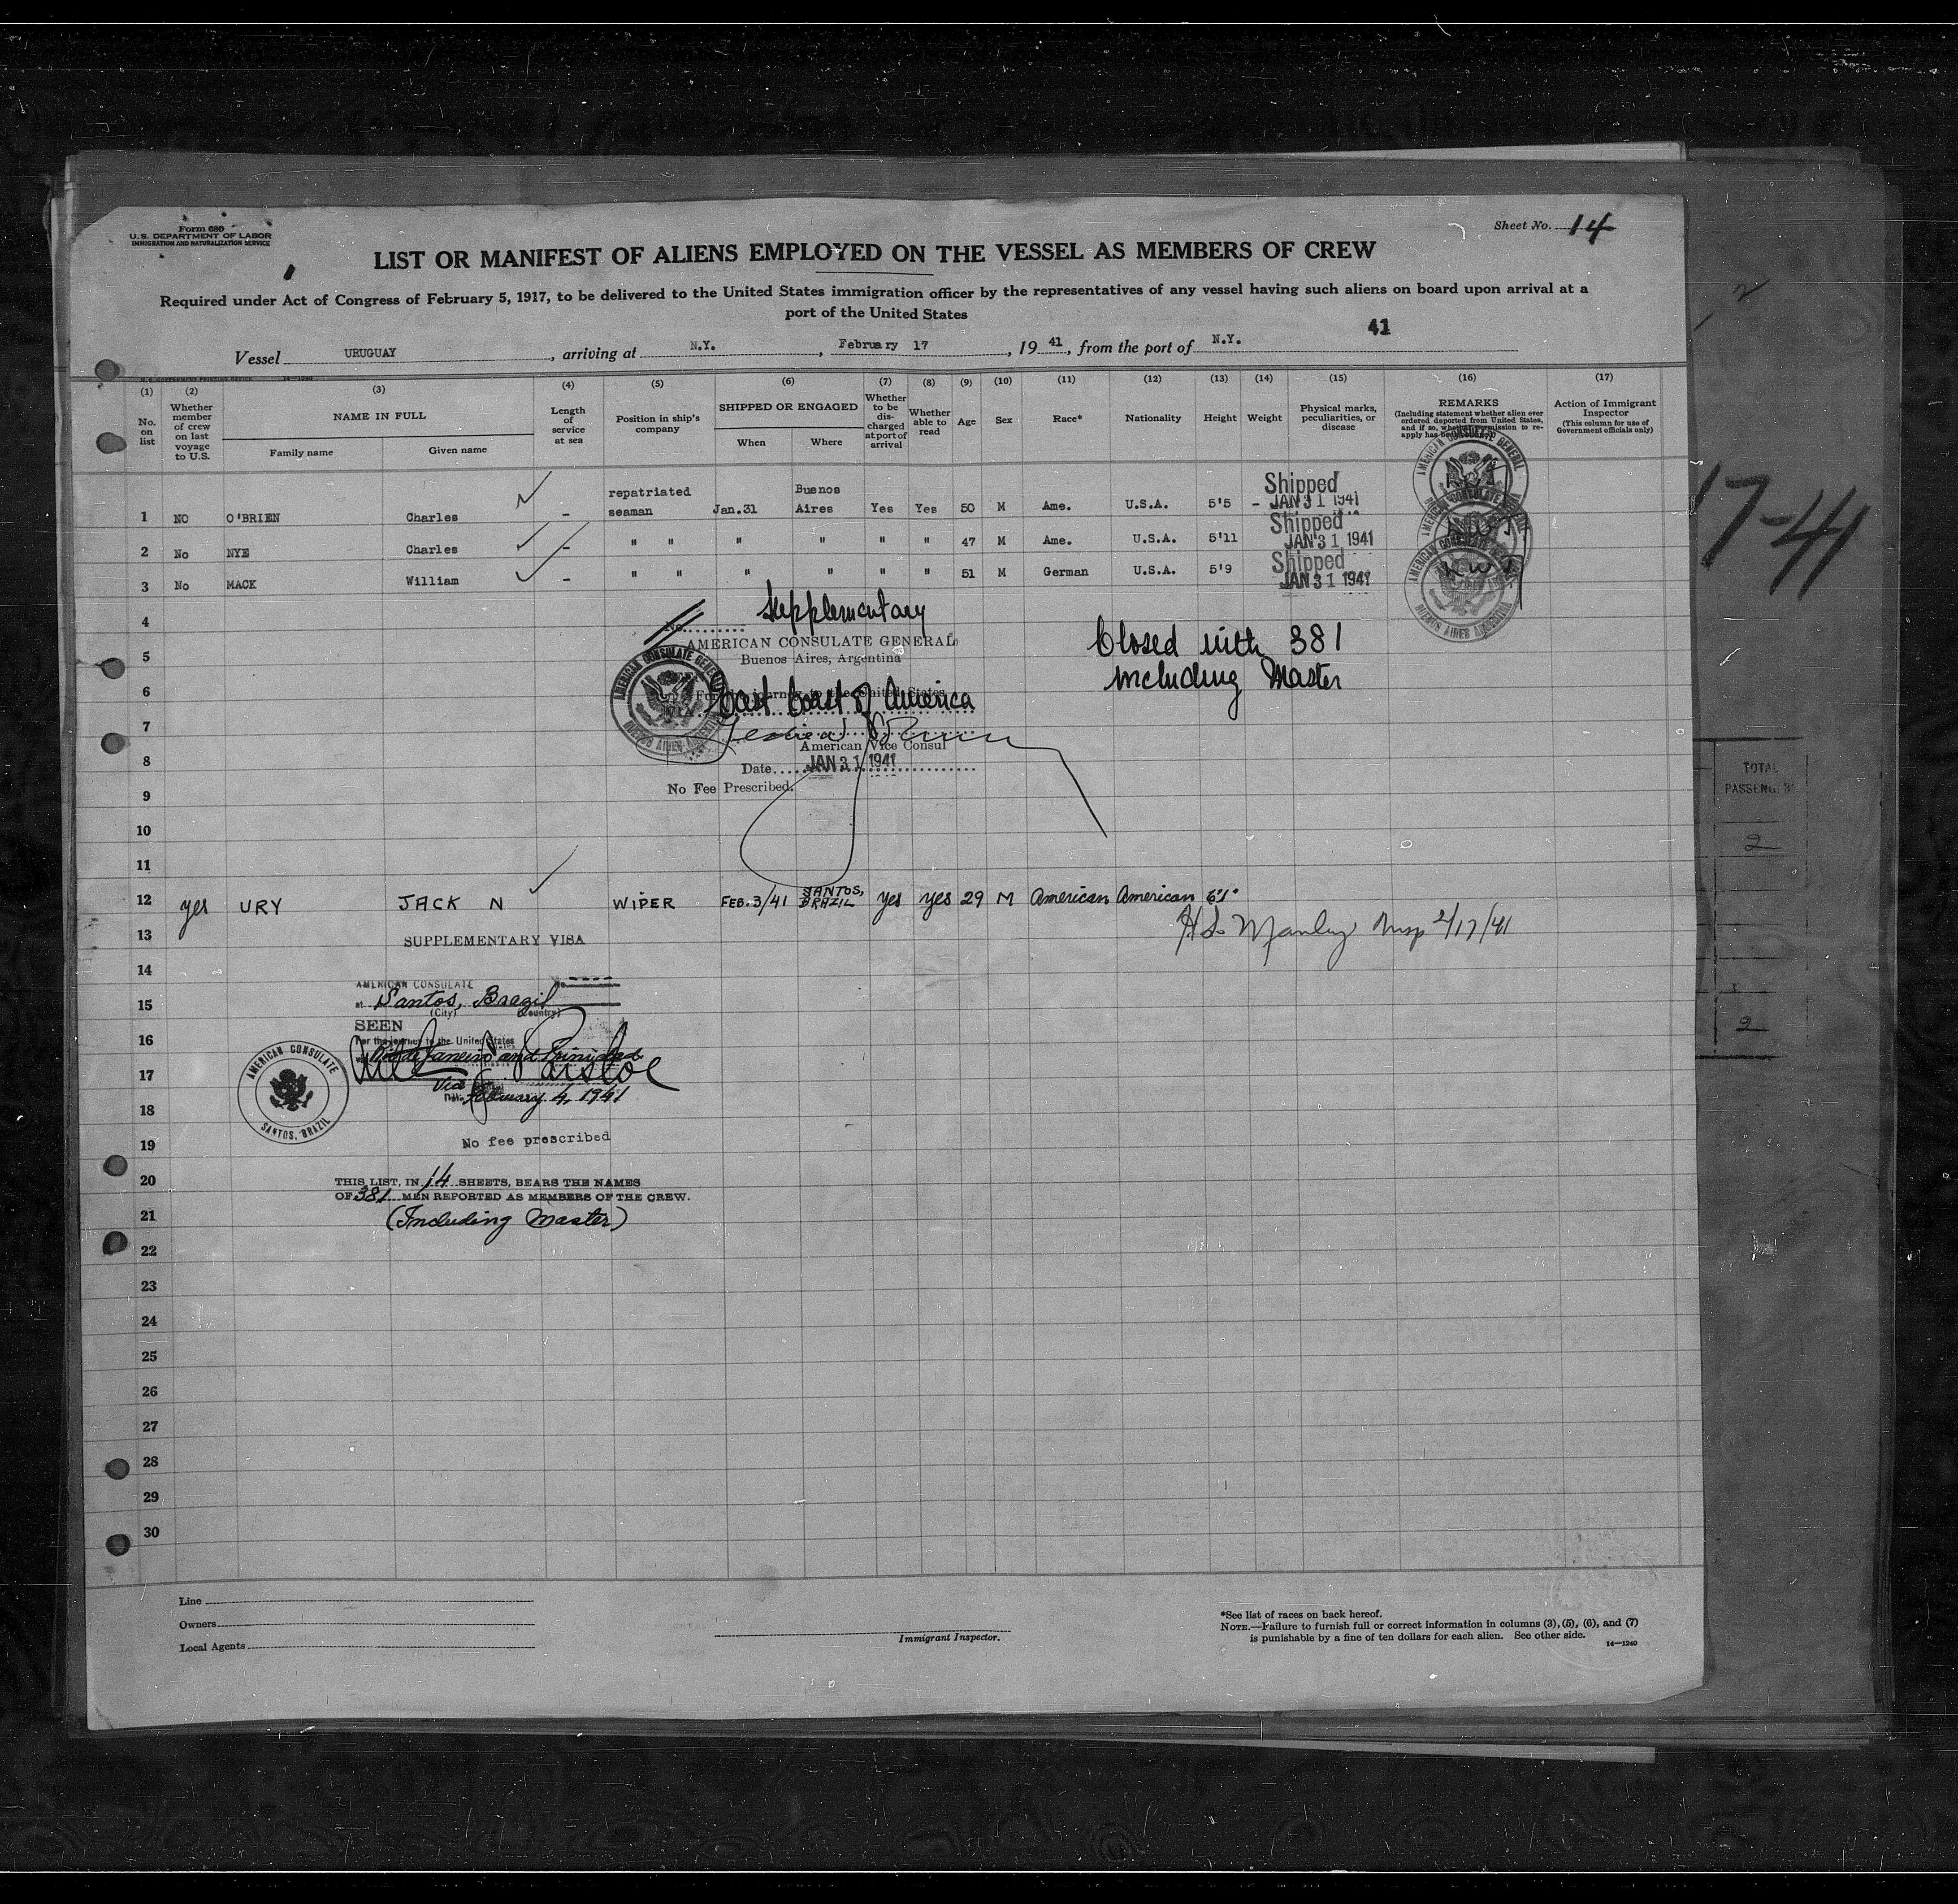 Form 680
U.S. DEPARTMENT OF LABOR
IMMIGRATION AND NATURALIZATION SERVICE
Sheet No. 14
LIST OR MANIFEST OF ALIENS EMPLOYED ON THE VESSEL AS MEMBERS OF CREW
Required under Act of Congress of February 5, 1917, to be delivered to the United States immigration officer by the representatives of any vessel having such aliens on board upon arrival at a
port of the United States
41
Vessel URUGUAY, arriving at N.Y., February 17, 1941, from the port of N.Y.
(1) (2) (3) (4) (5) (6) (7) (8) (9) (10) (11) (12) (13) (14) (15) (16) (17)
No. on list
Whether member of crew on last voyage to U.S.
NAME IN FULL
Family name
Given name
Length of service at sea
Position in ship's company
SHIPPED OR ENGAGED
When
Where
Whether to be discharged at port of arrival
Whether able to read
Age
Sex
Race*
Nationality
Height
Weight
Physical marks, peculiarities, or disease
REMARKS
(Including statement whether alien ever ordered deported from United States, and if so, whether permission to reapply has
Action of Immigrant Inspector
(This column for use of Government officials only)
1 NO O'BRIEN Charles - repatriated seaman Jan.31 Buenos Aires Yes Yes 50 M Ame. U.S.A. 5'5 - Shipped JAN 31 1941
2 No NYE Charles - " " " " " " 47 M Ame. U.S.A. 5'11 Shipped JAN 31 1941
3 No MACK William - " " " " " " 51 M German U.S.A. 5'9 Shipped JAN 31 1941
AMERICAN CONSULATE GENERAL
BUENOS AIRES ARGENTINA
4
Supplementary
No.
AMERICAN CONSULATE GENERAL
5
Buenos Aires, Argentina
Closed with 381
including Master
6
For the journey to the United States
East Coast of America
7
American Vice Consul
8
Date JAN 31 1941
No Fee Prescribed.
9
10
11
12 yes URY JACK N WIPER FEB. 3/41 SANTOS, BRAZIL yes yes 29 M American American 6'1"
13
H.S. Manley Insp 2/17/41
SUPPLEMENTARY VISA
14
AMERICAN CONSULATE No.
15
at Santos, Brazil
(City) (Country)
SEEN
16
For the journey to the United States
Rio de Janeiro and Trinidad
17
Via
February 4, 1941
18
AMERICAN CONSULATE
SANTOS, BRAZIL
19
No fee prescribed
20
THIS LIST, IN 14 SHEETS, BEARS THE NAMES
OF 381 MEN REPORTED AS MEMBERS OF THE CREW.
21
(Including Master)
22
23
24
25
26
27
28
29
30
Line
Owners
Local Agents
Immigrant Inspector.
*See list of races on back hereof.
NOTE.—Failure to furnish full or correct information in columns (3), (5), (6), and (7)
is punishable by a fine of ten dollars for each alien. See other side.
14—1240
17-41
TOTAL
PASSENG
2
2